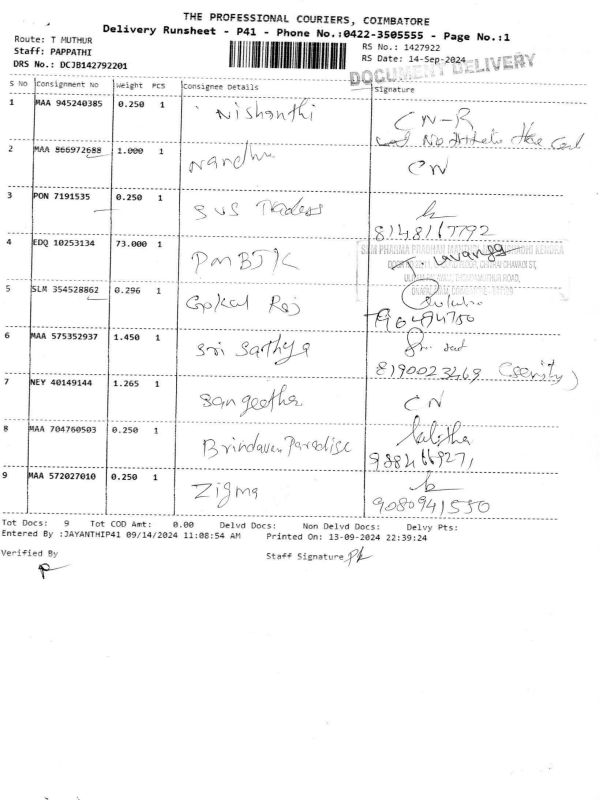 THE PROFESSIONAL COURIERS, COIMBATORE
Delivery Runsheet - P41 - Phone No.:0422-3505555 - Page No.:1
Route: T MUTHUR
RS No.: 1427922
Staff: PAPPATHI
RS Date: 14-Sep-2024
DRS No.: DCJB142792201
DOCUMENT DELIVERY
S NO Consignment No Weight PCS Consignee Details Signature
1 MAA 945240385 0.250 1 Nishanthi CN-R
2 MAA 866972688 1.000 1 Nandhu CN
3 PON 7191535 0.250 1 SVS Traders
8148167792
4 EDQ 10253134 73.000 1 PMBJK
5 SLM 354528862 0.296 1 Gokul Raj
6 MAA 575352937 1.450 1 Sri Sathya
8190023469
7 NEY 40149144 1.265 1 Sangeetha CN
8 MAA 704760503 0.250 1 Brindavan Paradise Lalitha
9 MAA 572027010 0.250 1 Zigma
9080941550
Tot Docs: 9 Tot COD Amt: 0.00 Delvd Docs: Non Delvd Docs: Delvy Pts:
Entered By :JAYANTHIP41 09/14/2024 11:08:54 AM Printed On: 13-09-2024 22:39:24
Verified By
Staff Signature